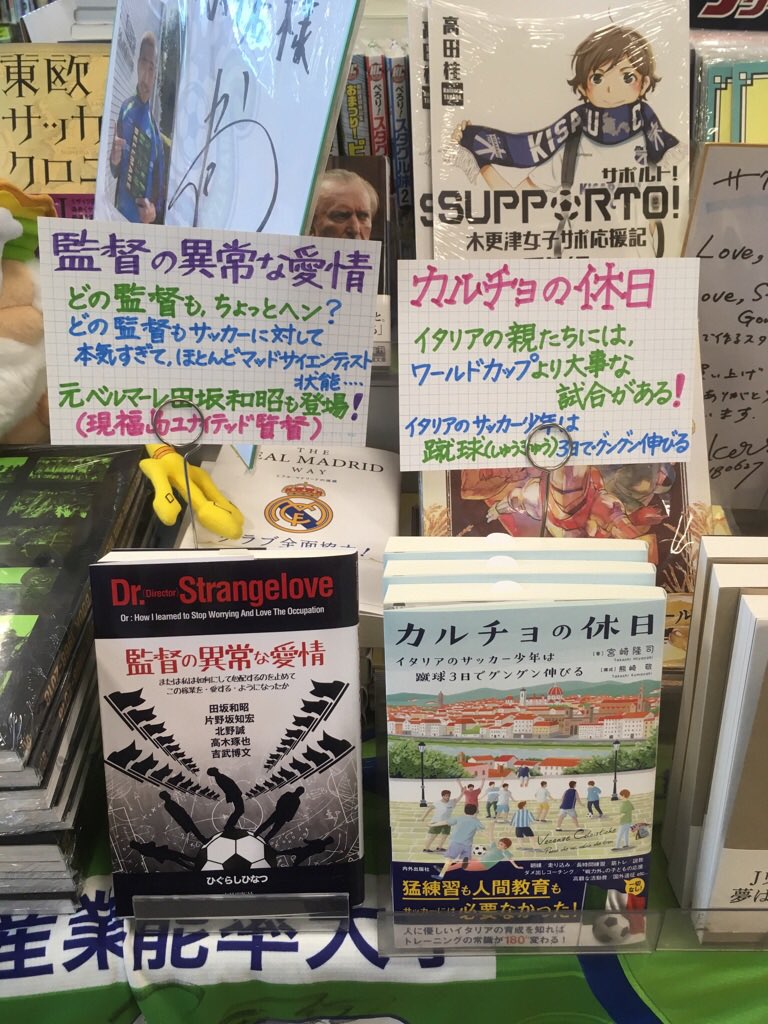 東欧
サッカ
クロニ
様
高田桂
KISA U C
サポルト!
SUPPORTO!
木更津女子サポ応援記
Love,
監督の異常な愛情
どの監督も、ちょっとヘン?
どの監督もサッカーに対して
本気すぎて、ほとんどマッドサイエンティスト
状態‥‥
元ベルマーレ田坂和昭も登場!
(現福島ユナイテッド監督)
カルチョの休日
イタリアの親たちには、
ワールドカップより大事な
試合がある!
イタリアのサッカー少年は
蹴球(しゅうきゅう)3日でグングン伸びる
THE
REAL MADRID
WAY
Dr. [Director] Strangelove
Or : How I learned to Stop Worrying And Love The Occupation
監督の異常な愛情
または私は如何にして心配するのを止めて
この稼業を・愛する・ようになったか
田坂和昭
片野坂知宏
北野誠
高木琢也
吉武博文
ひぐらしひなつ
カルチョの休日
イタリアのサッカー少年は
蹴球3日でグングン伸びる
[著] 宮崎隆司
Takashi Miyazaki
[構成] 熊崎 敬
Takashi Kumazaki
内外出版社
朝練 走り込み 長時間練習 筋トレ 説教
ダメ出しコーチング "戦力外"の子どもの応援
高額な活動費 国外遠征 etc.
猛練習も人間教育も
サッカーには必要なかった!
人に優しいイタリアの育成を知れば
トレーニングの常識が180°変わる!
産業能率大
夢は